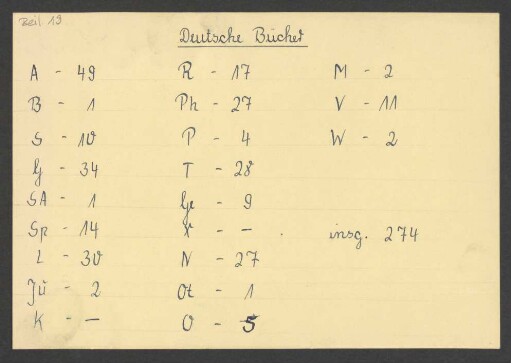 Beil 19
Deutsche Bücher
A - 49
B - 1
S - 10
G - 34
SA - 1
Sp - 14
L - 30
Jü - 2
K - –
R - 17
Ph - 27
P - 4
T - 28
Ge - 9
X - –
N - 27
Ot - 1
O - 5
M - 2
V - 11
W - 2
insg. 274